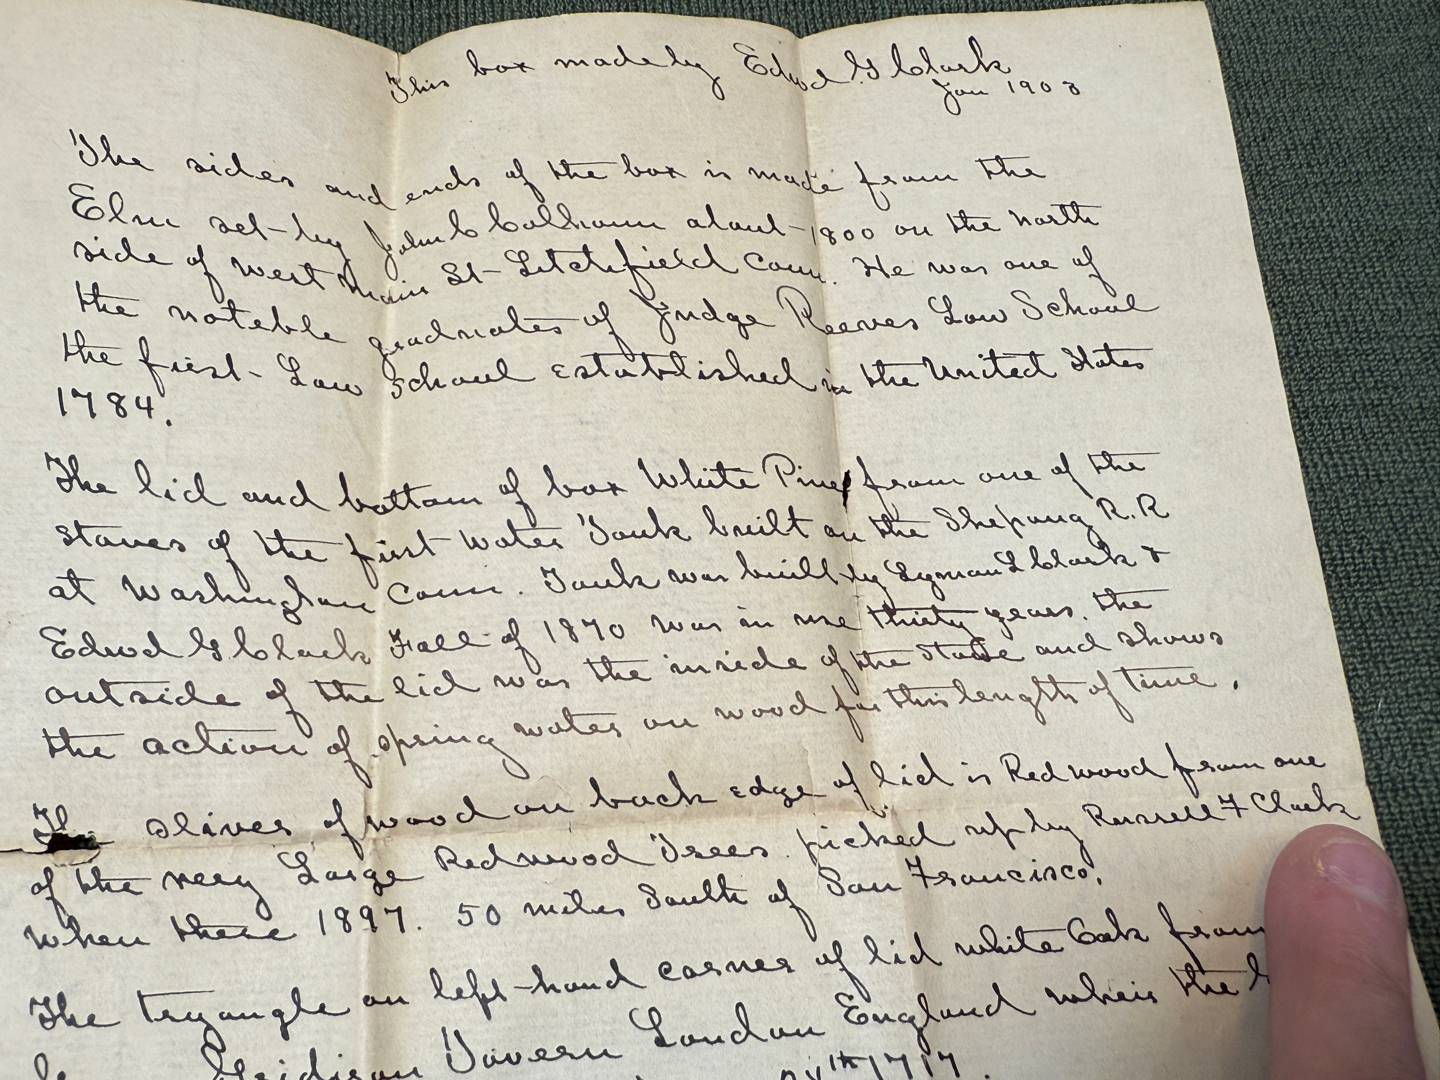 This box made by Edwd G Clark
Jan 1903
The sides and ends of the box is made from the
Elm set by John C Calhoun about 1800 on the north
side of west Main St Litchfield Conn. He was one of
the noteble graduates of Judge Reeves Law School
the first Law School established in the United States
1784.
The lid and bottom of box White Pine from one of the
staves of the first Water Tank built on the Shepaug R.R
at Washington Conn. Tank was built by Lyman L Clark &
Edwd G Clark Fall of 1870 was in use thirty years. the
outside of the lid was the inside of the stave and shows
the action of spring water on wood for this length of time.
The sliver of wood on back edge of lid is Redwood from one
of the very Large Redwood Trees picked up by Russell F Clark
when there 1897. 50 miles South of San Francisco.
The tryangle on left-hand corner of lid white Oak from
Tavern London England wheir the
1717.